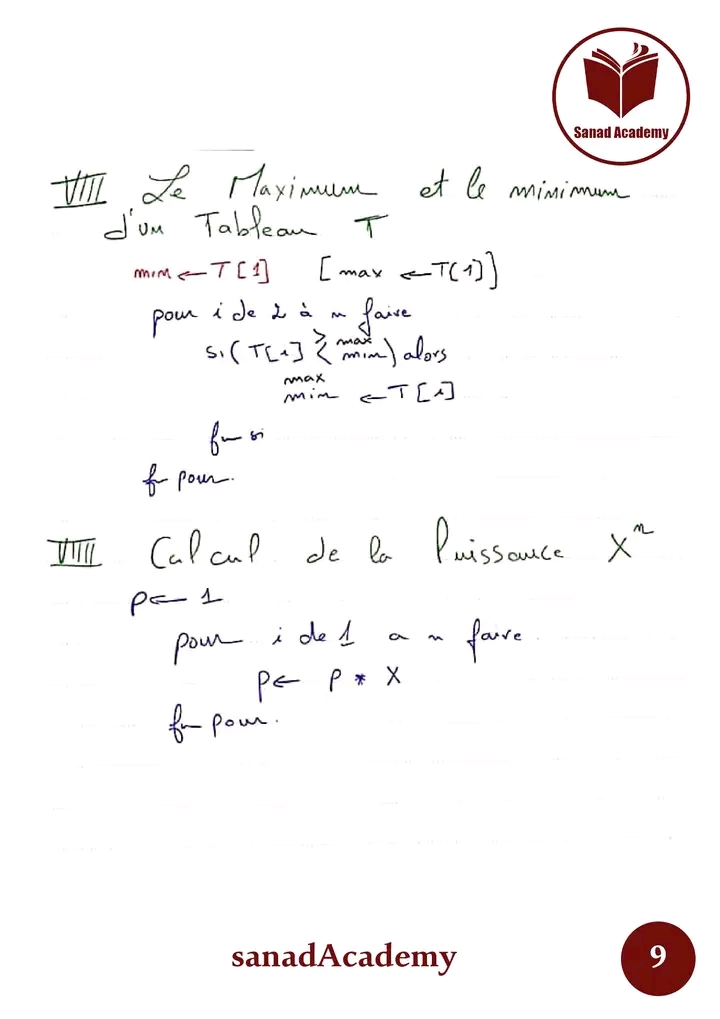 Sanad Academy
VIII Le Maximum et le minimum
d'un Tableau T
min ← T[1] [max ← T(1)]
pour i de 2 à n faire
si (T[i] > max
< min) alors
max
min ← T[i]
fin si
fin pour.
VIIII Calcul de la Puissance Xⁿ
p ← 1
pour i de 1 a n faire.
p ← p * X
fin pour.
sanadAcademy
9